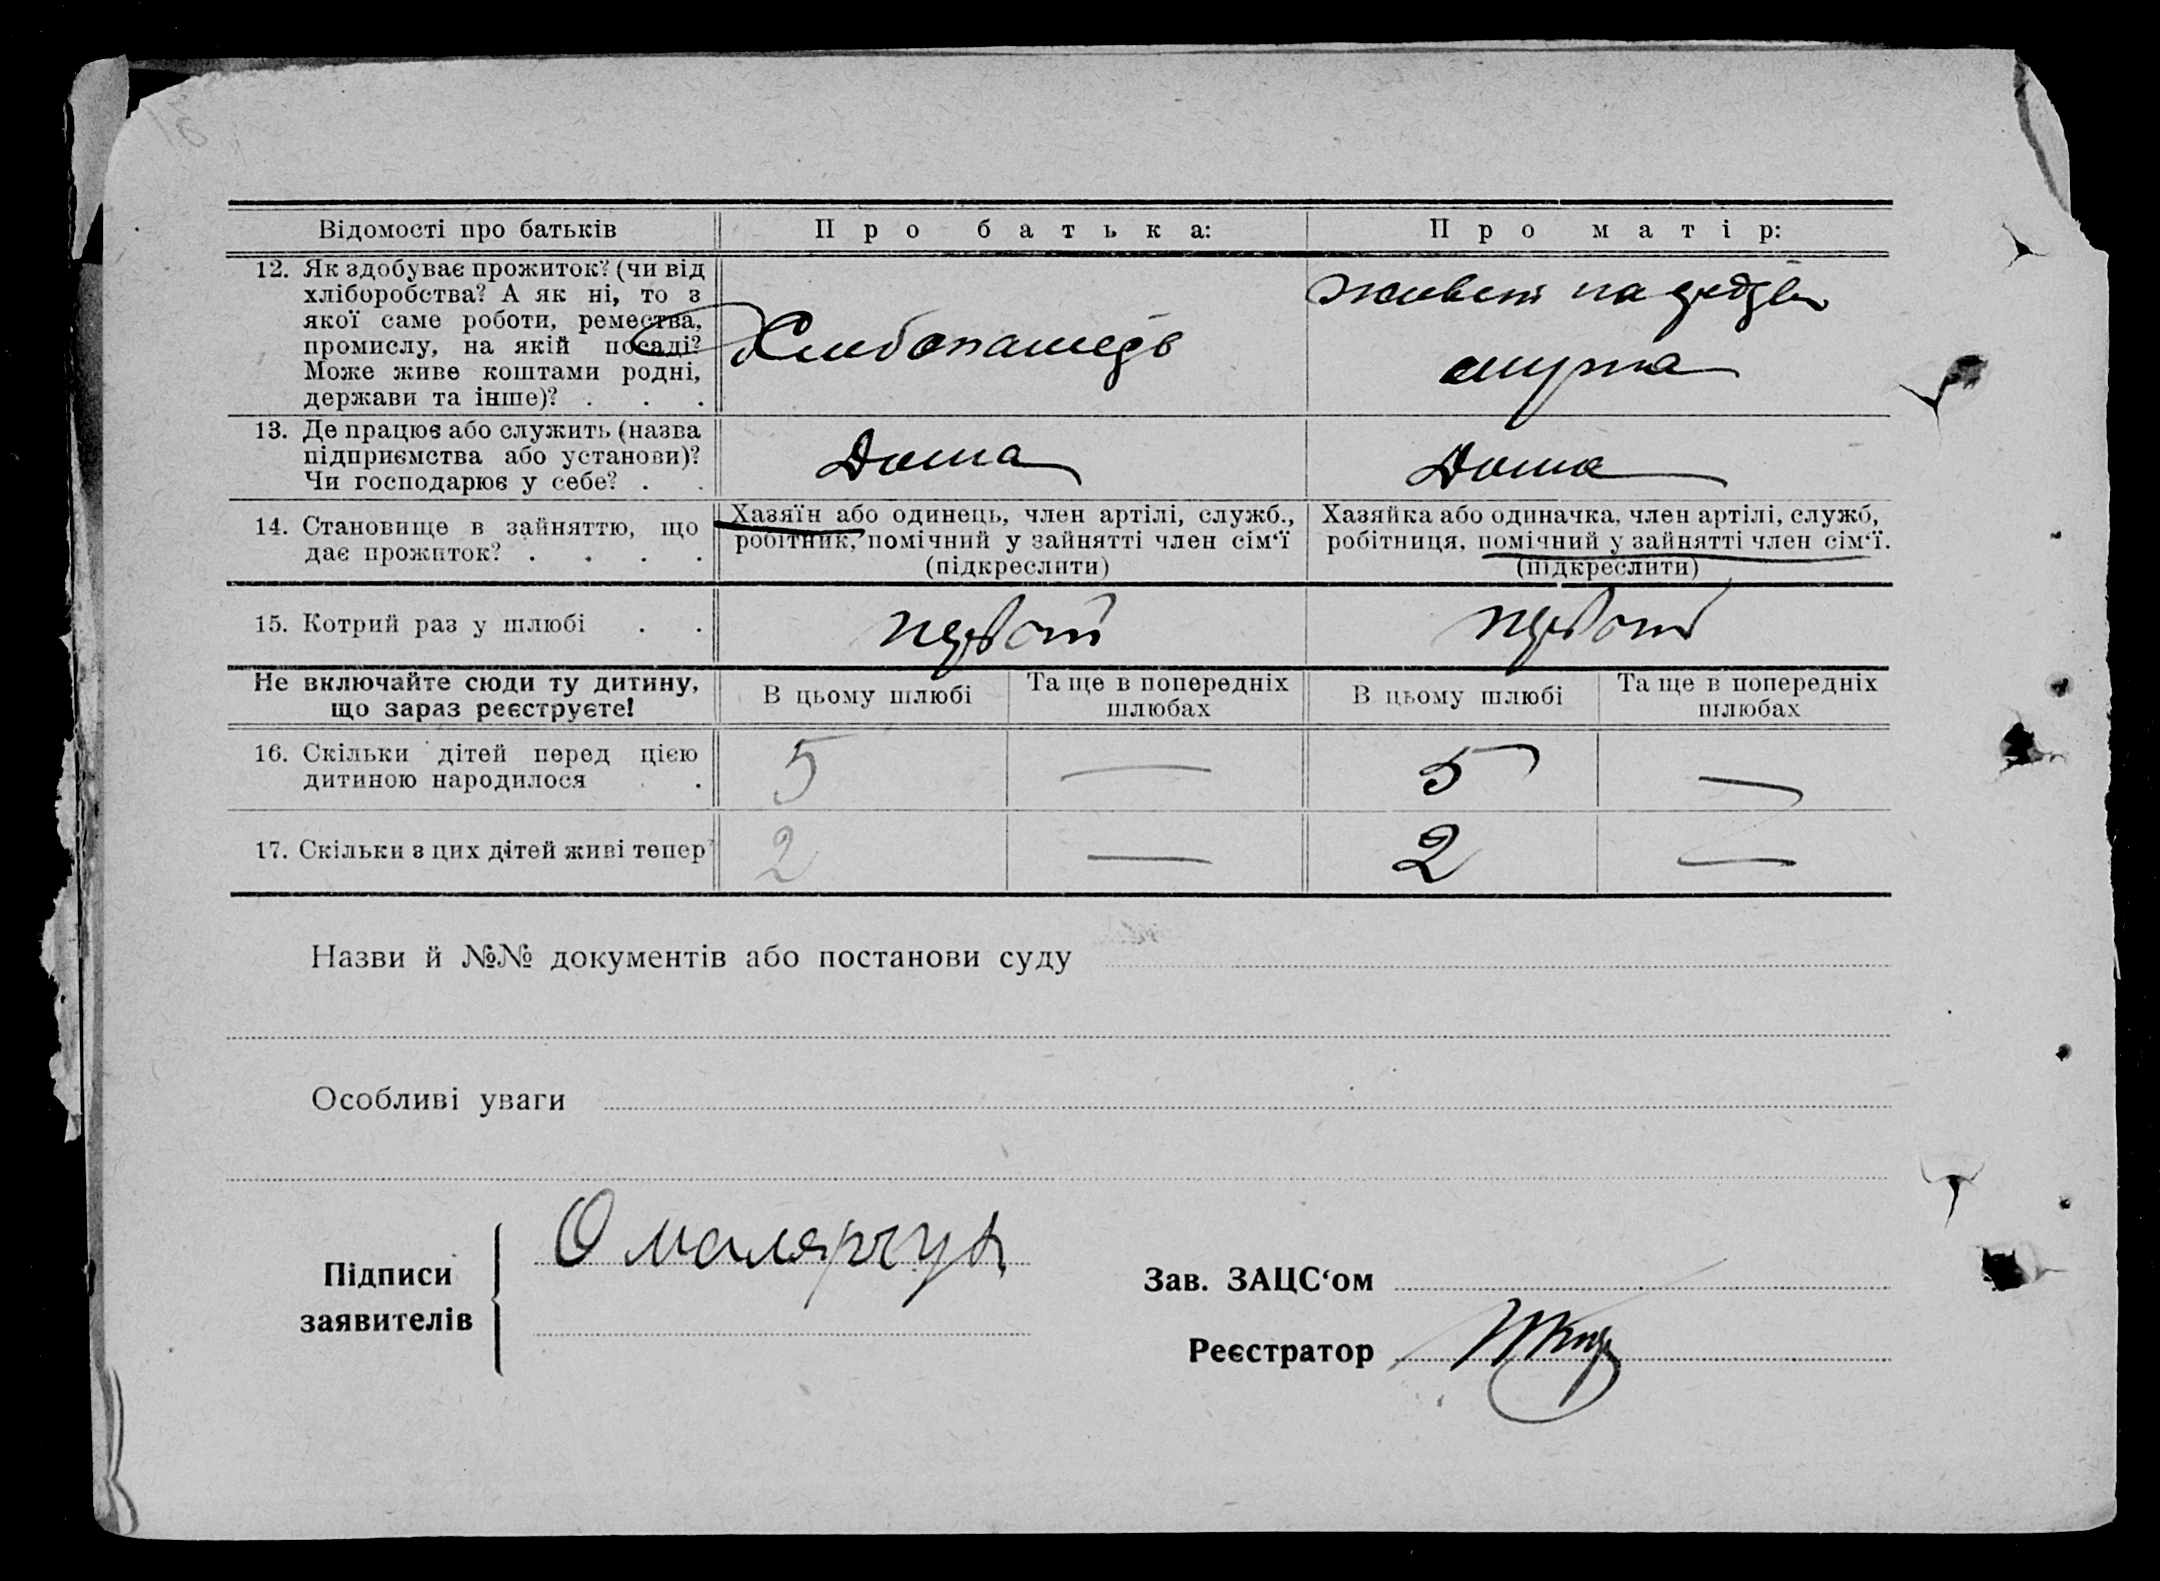 Відомості про батьків
Про батька:
Про матір:
12. Як здобуває прожиток? (чи від
хліборобства? А як ні, то з
якої саме роботи, ремества,
промислу, на якій посаді?
Може живе коштами родні,
держави та інше)? . . .
Хлибопашедь
живет на
мужа
13. Де працює або служить (назва
підприємства або установи)?
Чи господарює у себе? . .
Дома
Дома
14. Становище в зайняттю, що
дає прожиток? . . . .
Хазяїн або одинець, член артілі, служб.,
робітник, помічний у зайнятті член сім‘ї
(підкреслити)
Хазяйка або одиначка, член артілі, служб,
робітниця, помічний у зайнятті член сім‘ї.
(підкреслити)
15. Котрий раз у шлюбі . .
первый
первый
Не включайте сюди ту дитину,
що зараз реєструєте!
В цьому шлюбі
Та ще в попередніх
шлюбах
В цьому шлюбі
Та ще в попередніх
шлюбах
16. Скільки дітей перед цією
дитиною народилося . .
5
—
5
—
17. Скільки з цих дітей живі тепер?
2
—
2
—
Назви й №№ документів або постанови суду
Особливі уваги
Підписи
заявителів
О Малярчук
Зав. ЗАЦС‘ом
Реєстратор